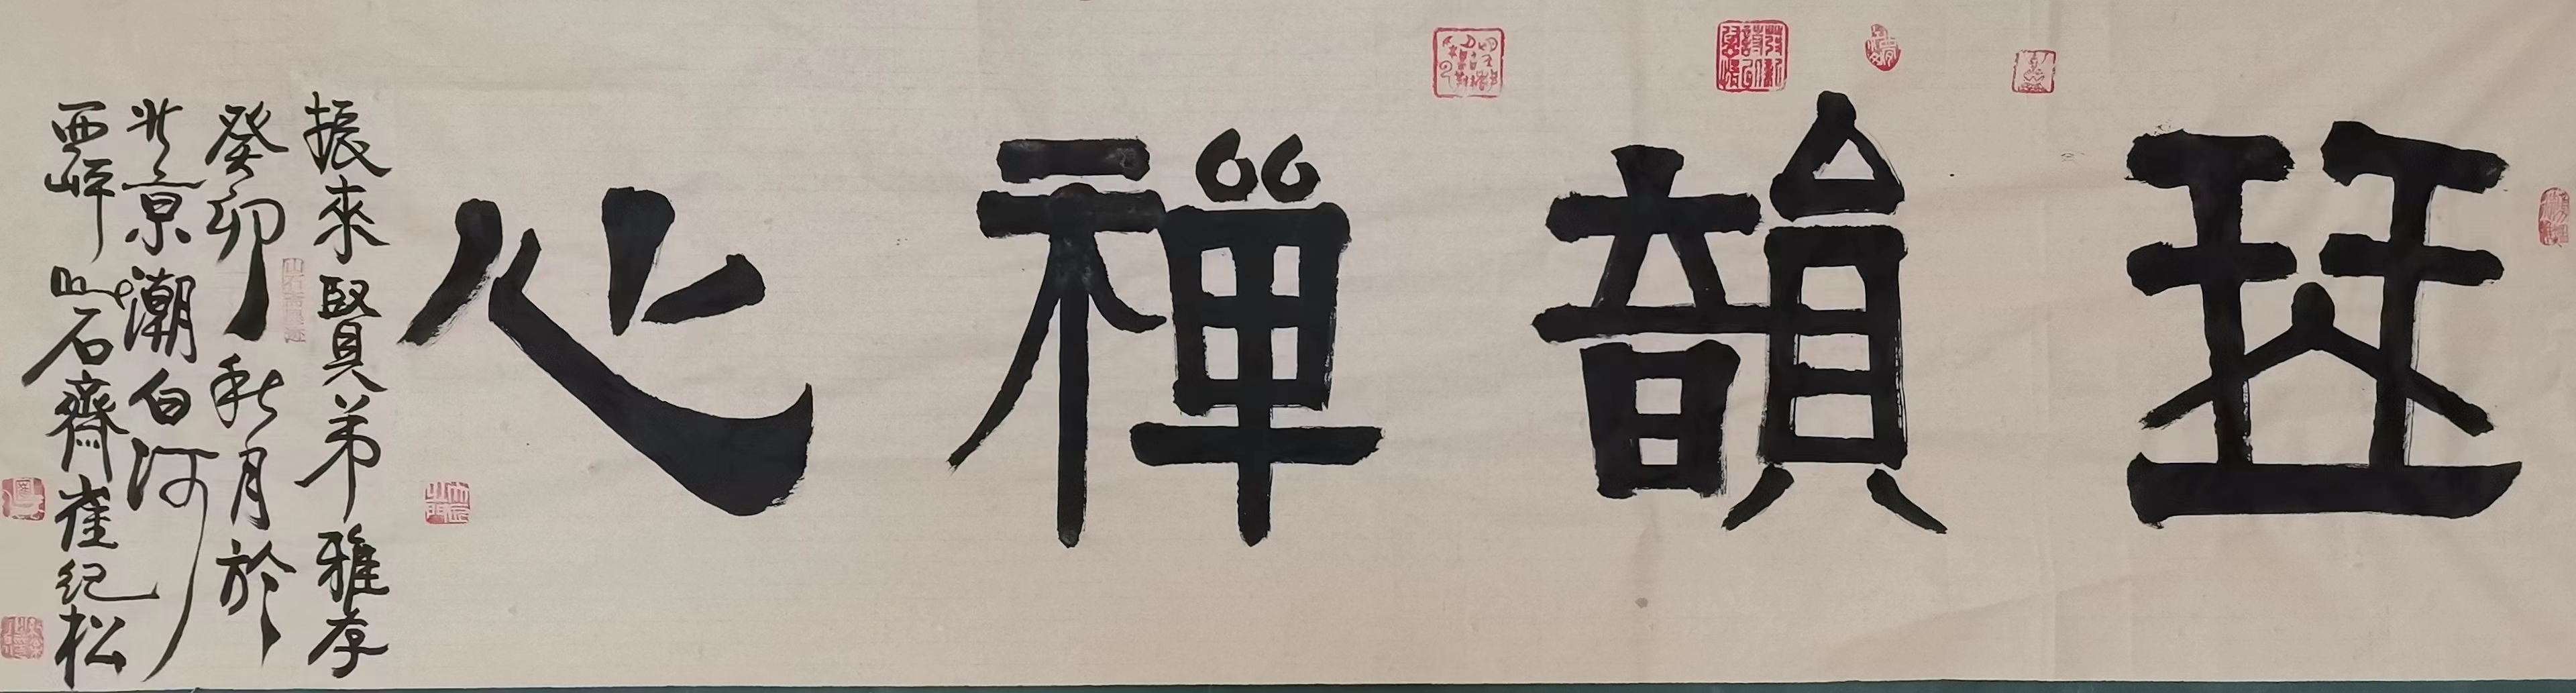 珡韻禪心
振來賢弟雅存
癸卯秋月於
北京潮白河
西岸山石齋崔纪松